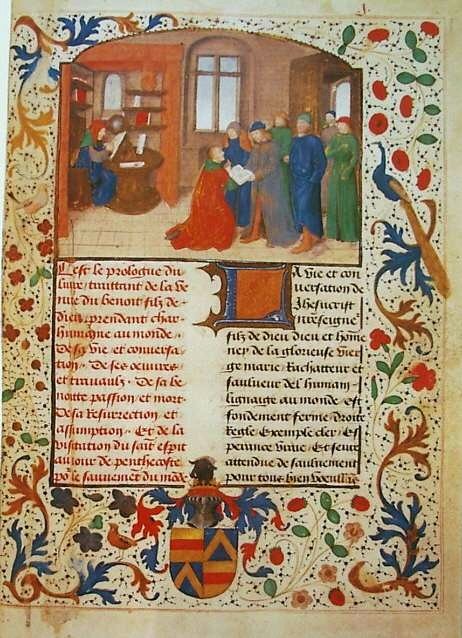 C'est le prologue du
livre traittant de la ve
nue du benoit filz de
dieu prendant char
humaine au monde
De sa vie et conversa
tion. De ses oeuvres
et travaulx. De sa be
noitte passion et mort
De sa resurrection et
assumption. Et de la
visitation du saint esprit
au jour de penthecoste
po le sauvemēt du mōde
La vie et con
versation de
Ihesucrist
filz de dieu dieu et home
ney de la glorieuse vier
ge marie Rachatteur et
saulveur del humain
lignaige au monde est
fondement ferme Droite
Regle Exemple cler Es
perance vraie Et seure
attendue de saulvement
pour tous bien